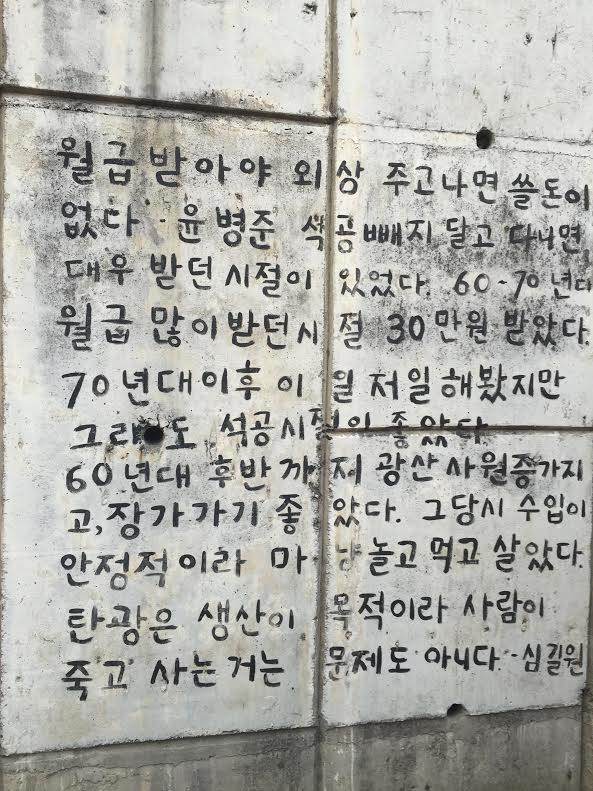 월급 받아야 외상 주고나면 쓸돈이
없다 · 윤병준 석공빼지 달고 다니면,
대우 받던 시절이 있었다. 60~70년대
월급 많이받던시절 30만원 받았다.
70년대이후 이일저일해봤지만
그래도 석공시절이 좋았다.
60년대 후반까지 광산사원증가지
고, 장가가기 좋았다. 그당시 수입이
안정적이라 마냥놀고먹고 살았다.
탄광은 생산이 목적이라 사람이
죽고 사는거는 문제도 아니다 · 심길원